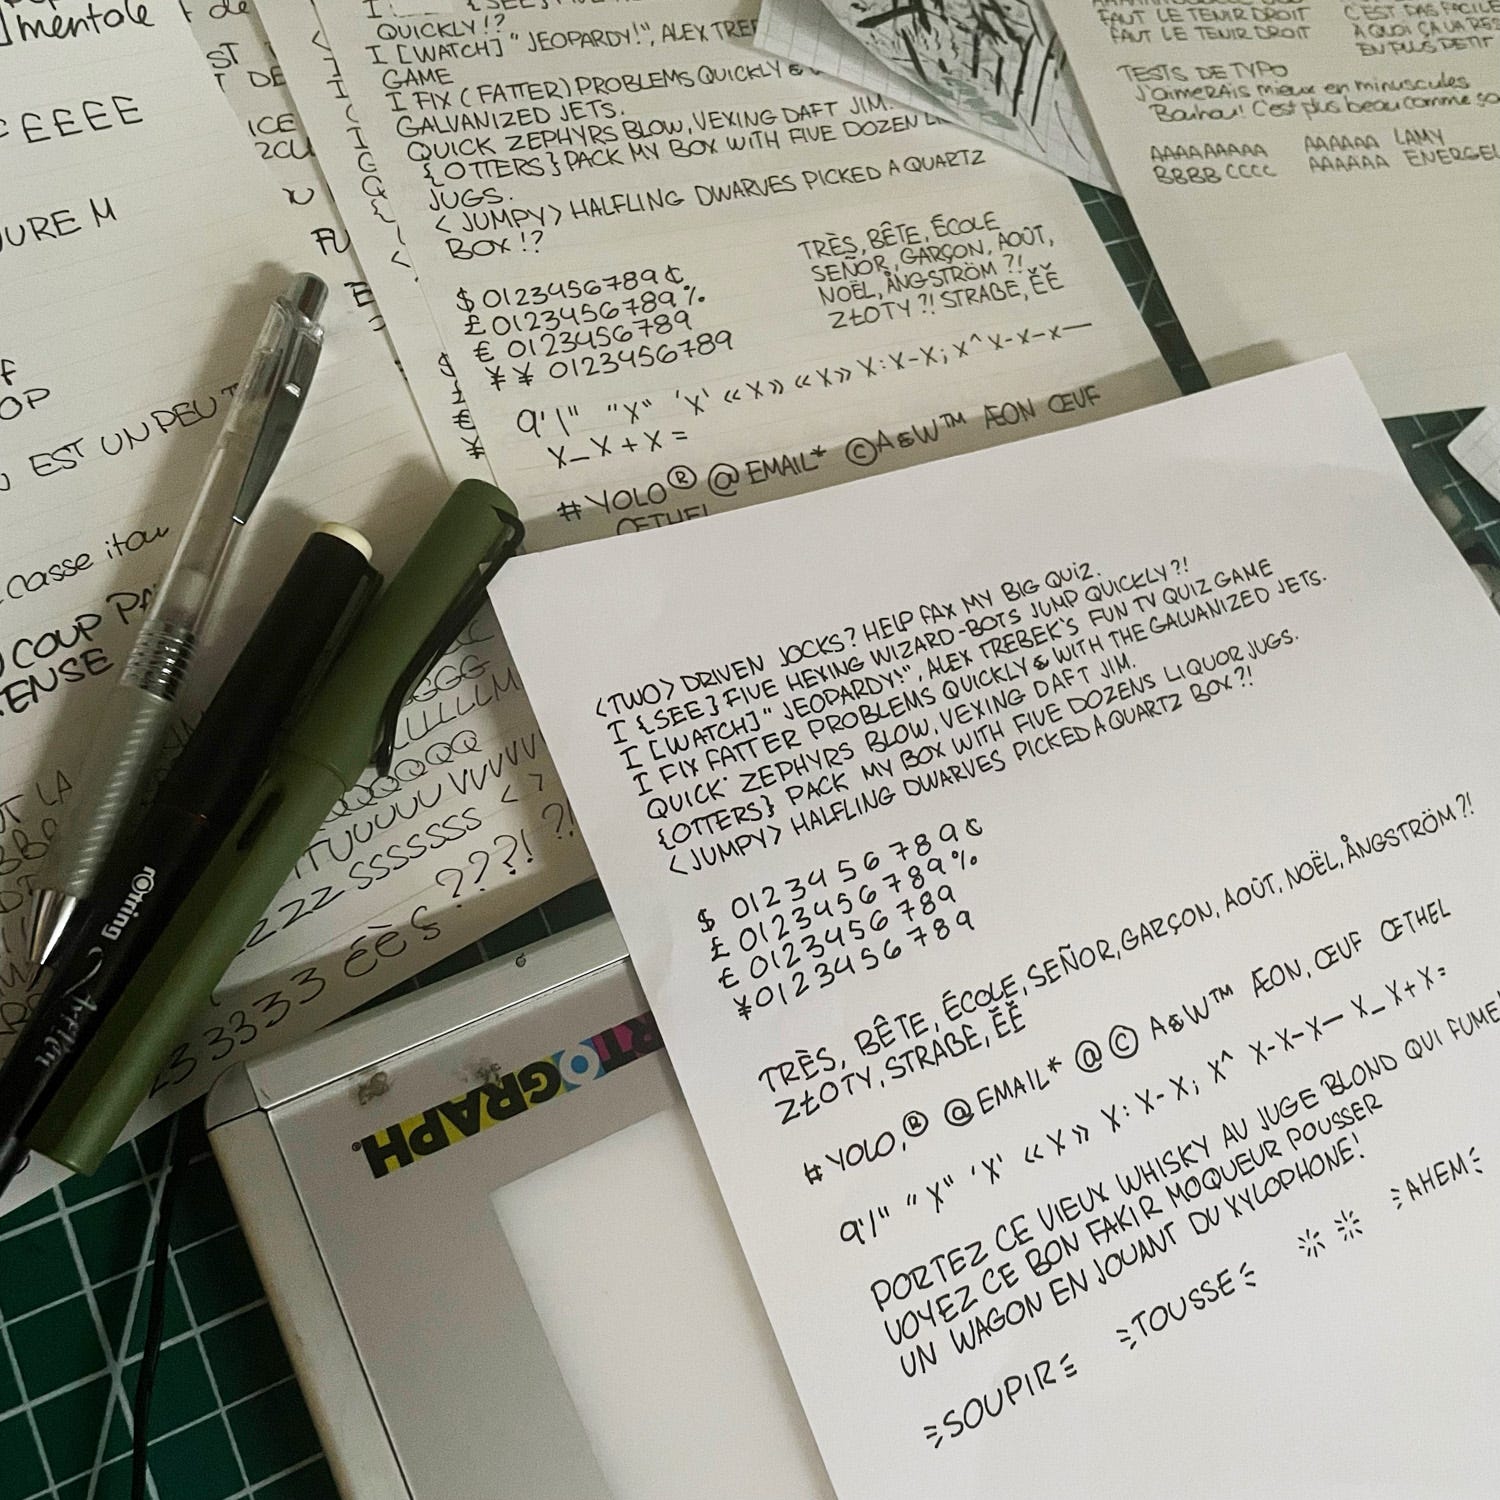 ]mentole
EEEEE
URE M
OP
EST UN PEU
casse itou
COUP
ENSE
ST
DE
ICE
QUICKLY!?
I [WATCH] " JEOPARDY!", ALEX
GAME
I FIX (FATTER) PROBLEMS QUICKLY &
GALVANIZED JETS.
QUICK ZEPHYRS BLOW, VEXING DAFT JIM.
{OTTERS} PACK MY BOX WITH FIVE DOZEN
JUGS.
<JUMPY> HALFLING DWARVES PICKED A QUARTZ
BOX!?
$ 0123456789¢
£ 0123456789%
€ 0123456789
¥ ¥ 0123456789
TRÈS, BÊTE, ÉCOLE
SEÑOR, GARÇON, AOÛT,
NOËL, ÅNGSTRÖM ?!
ZŁOTY ?! STRAßE, ĚĔ
9'/" "X" 'X' «X» «X» X:X-X; X^X-X-X—
X_X+X=
#YOLO® @EMAIL* ©A&W™ ÆON ŒUF
ŒTHEL
FAUT LE TENIR DROIT
FAUT LE TENIR DROIT
C'EST PAS FACILE
A QUOI ÇA VA RES
EN PLUS PETIT
TESTS DE TYPO
J'aimerais mieux en minuscules
C'est plus beau comme ça
AAAAAAAAA
BBBB CCCC
AAAAAA LAMY
AAAAAA ENERGEL
GGG
LLLLLLM
QQQQQQ
TTUUUUU VVVVV
ZZZZ SSSSSSS < >
33333 éèç ???! ?!
rOtring
ArtPen
ARTOGRAPH®
<TWO> DRIVEN JOCKS? HELP FAX MY BIG QUIZ.
I {SEE} FIVE HEXING WIZARD-BOTS JUMP QUICKLY?!
I [WATCH] " JEOPARDY!", ALEX TREBEK'S FUN TV QUIZ GAME
I FIX FATTER PROBLEMS QUICKLY & WITH THE GALVANIZED JETS.
QUICK ZEPHYRS BLOW, VEXING DAFT JIM.
{OTTERS} PACK MY BOX WITH FIVE DOZENS LIQUOR JUGS.
<JUMPY> HALFLING DWARVES PICKED A QUARTZ BOX?!
$ 0123456789¢
£ 0123456789%
€ 0123456789
¥0123456789
TRÈS, BÊTE, ÉCOLE, SEÑOR, GARÇON, AOÛT, NOËL, ÅNGSTRÖM?!
ZŁOTY, STRAßE, ĚĔ
#YOLO,® @EMAIL* @© A&W™ ÆON, ŒUF ŒTHEL
9'/" "X" 'X' «X» X: X-X; X^ X-X-X— X_X+X=
PORTEZ CE VIEUX WHISKY AU JUGE BLOND QUI FUME!
VOYEZ CE BON FAKIR MOQUEUR POUSSER
UN WAGON EN JOUANT DU XYLOPHONE!
SOUPIR TOUSSE AHEM